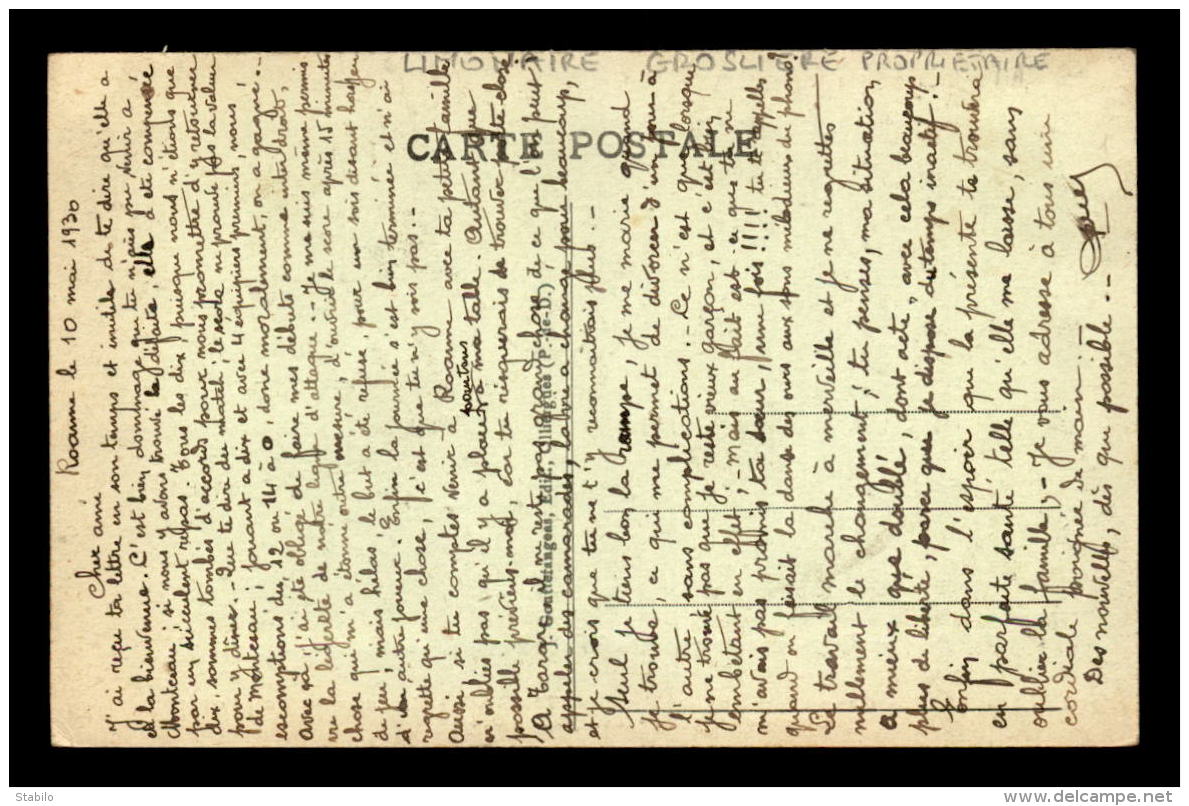 LIMONAIRE GROSLIERE PROPRIETAIRE
CARTE POSTALE
J. Goutterangeas, Edit., Olliergues (P.-de-D.)
Roanne le 10 mai 1930
Cher ami
J'ai reçu ta lettre en son temps et inutile de te dire qu'elle a
été la bienvenue. C'est bien dommage que tu n'aies pu venir à
Montceau si nous y avons trouvé la défaite, elle a été compensée
par un succulent repas. Tous les dix, puisque nous n'étions que
dix, sommes tombés d'accord pour nous promettre d'y retourner
pour y dîner. - Que te dire du match, le score ne prouve pas la valeur
de Montceau; jouant à dix et avec 4 équipiers premiers, nous
escomptions du 12 ou 14 à 0, donc moralement, on a gagné. -
Avec ça j'ai été obligé de faire mes débuts comme inter droit,
vu la légèreté de notre ligne d'attaque. - Je me suis même permis
chose qui m'a étonné outre mesure, d'ouvrir le score après 15 minutes
de jeu, mais hélas! le but a été refusé, pour un soi disant hasfen
d'un autre joueur. Enfin la journée s'est bien terminée et n'ai
regretté qu'une chose, c'est que tu n'y sois pas. -
Aussi si tu comptes venir à Roanne avec ta petite famille
n'oublies pas qu'il y a pourtant place à ma table. Autant que
possible, préviens-moi, car tu risquerais de trouver porte close
A Bargne, il ne reste pas grand chose de ce que l'on peut
appeler des camarades, la ligne a changé pour beaucoup,
et je crois que tu ne t'y reconnaitrais plus. -
Seul je tiens bon la rampe, je me marie quand
je trouve, ce qui me permet de divorcer d'un jour à
l'autre sans complications. - Ce n'est que lorsque
je ne trouve pas que je reste vieux garçon, et c'est bien
embêtant en effet, - mais au fait est-ce que tu ne
m'avais pas promis ta sœur, une fois!!!! tu te rappelles,
quand on faisait la danse des ours aux sons mélodieux du phono!
Le travail marche à merveille et je ne regrettes
nullement le changement; tu penses, ma situation
a mieux que doublé, dont acte, avec cela beaucoup
plus de liberté, parce que je dispose du temps inactif! -
Enfin dans l'espoir que la présente te trouvera
en parfaite santé, telle qu'elle me laisse, sans
oublier la famille, - Je vous adresse à tous une
cordiale poignée de main. -
Des nouvelles, dès que possible. -